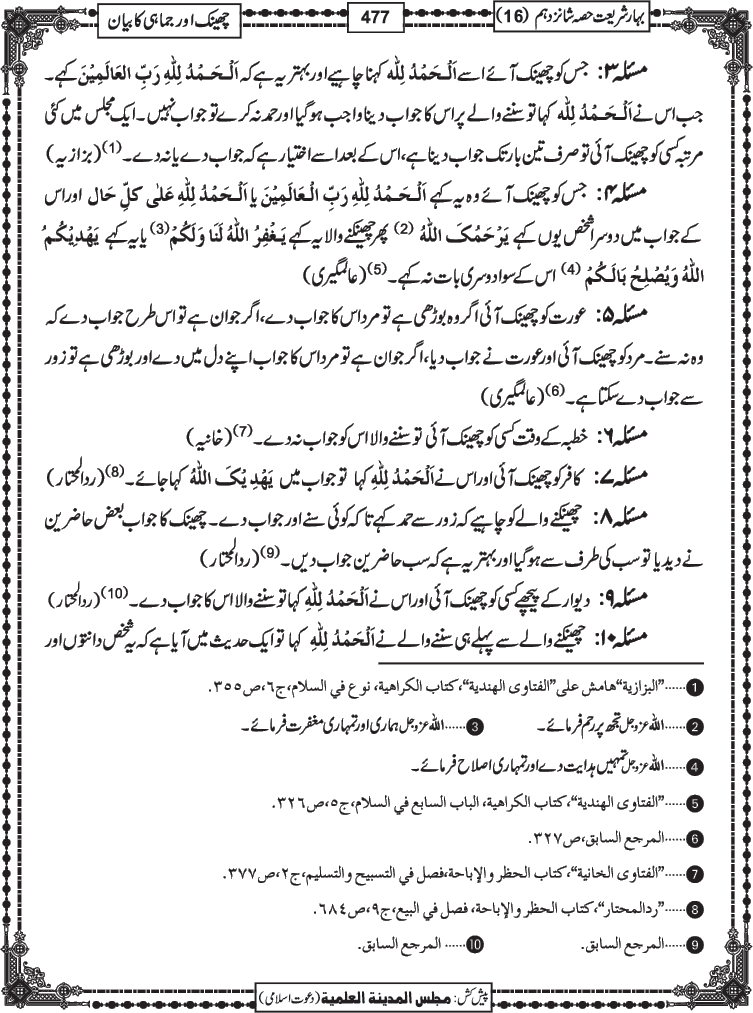 بہارِ شریعت حصہ شانزدہم (16)
477
چھینک اور جماہی کا بیان
مسئلہ ۳: جس کو چھینک آئے اسے اَلْحَمْدُ لِلّٰه کہنا چاہیے اور بہتر یہ ہے کہ اَلْحَمْدُ لِلّٰهِ رَبِّ الْعَالَمِیْنَ کہے۔
جب اس نے اَلْحَمْدُ لِلّٰه کہا تو سننے والے پر اس کا جواب دینا واجب ہوگیا اور حمد نہ کرے تو جواب نہیں۔ ایک مجلس میں کئی
مرتبہ کسی کو چھینک آئی تو صرف تین بار تک جواب دینا ہے، اس کے بعد اسے اختیار ہے کہ جواب دے یا نہ دے۔(1) (بزازیہ)
مسئلہ ۴: جس کو چھینک آئے وہ یہ کہے اَلْحَمْدُ لِلّٰهِ رَبِّ الْعَالَمِیْنَ یا اَلْحَمْدُ لِلّٰهِ عَلٰی کلِّ حَال اور اس
کے جواب میں دوسرا شخص یوں کہے یَرْحَمُکَ اللّٰهُ (2) پھر چھینکنے والا یہ کہے یَغْفِرُ اللّٰهُ لَنَا وَلَکُمْ(3) یا یہ کہے یَهْدِیْکُمُ
اللّٰهُ وَیُصْلِحُ بَالَکُمْ (4) اس کے سوا دوسری بات نہ کہے۔(5) (عالمگیری)
مسئلہ ۵: عورت کو چھینک آئی اگر وہ بوڑھی ہے تو مرد اس کا جواب دے، اگر جوان ہے تو اس طرح جواب دے کہ
وہ نہ سنے۔ مرد کو چھینک آئی اور عورت نے جواب دیا، اگر جوان ہے تو مرد اس کا جواب اپنے دل میں دے اور بوڑھی ہے تو زور
سے جواب دے سکتا ہے۔(6) (عالمگیری)
مسئلہ ۶: خطبہ کے وقت کسی کو چھینک آئی تو سننے والا اس کو جواب نہ دے۔(7) (خانیہ)
مسئلہ ۷: کافر کو چھینک آئی اور اس نے اَلْحَمْدُ لِلّٰهِ کہا تو جواب میں یَهْدِیْکَ اللّٰهُ کہا جائے۔(8) (ردالمحتار)
مسئلہ ۸: چھینکنے والے کو چاہیے کہ زور سے حمد کہے تاکہ کوئی سنے اور جواب دے۔ چھینک کا جواب بعض حاضرین
نے دیدیا تو سب کی طرف سے ہوگیا اور بہتر یہ ہے کہ سب حاضرین جواب دیں۔(9) (ردالمحتار)
مسئلہ ۹: دیوار کے پیچھے کسی کو چھینک آئی اور اس نے اَلْحَمْدُ لِلّٰهِ کہا تو سننے والا اس کا جواب دے۔(10) (ردالمحتار)
مسئلہ ۱۰: چھینکنے والے سے پہلے ہی سننے والے نے اَلْحَمْدُ لِلّٰهِ کہا تو ایک حدیث میں آیا ہے کہ یہ شخص دانتوں اور
1 ......"البزازية"هامش على"الفتاوى الهندية"،كتاب الكراهية، نوع في السلام،ج٦،ص٣٥٥.
2 ......اللہ عزوجل تجھ پر رحم فرمائے۔ 3 ......اللہ عزوجل ہماری اور تمہاری مغفرت فرمائے۔
4 ......اللہ عزوجل تمہیں ہدایت دے اور تمہاری اصلاح فرمائے۔
5 ......"الفتاوى الهندية"،كتاب الكراهية، الباب السابع في السلام،ج٥،ص٣٢٦.
6 ......المرجع السابق،ص٣٢٧.
7 ......"الفتاوى الخانية"،كتاب الحظر والإباحة،فصل في التسبيح والتسليم،ج٢،ص٣٧٧.
8 ......"ردالمحتار"،كتاب الحظر والإباحة، فصل في البيع،ج٩،ص٦٨٤.
9 ......المرجع السابق. 10 ...... المرجع السابق.
پیش کش: مجلس المدينة العلمية (دعوت اسلامی)